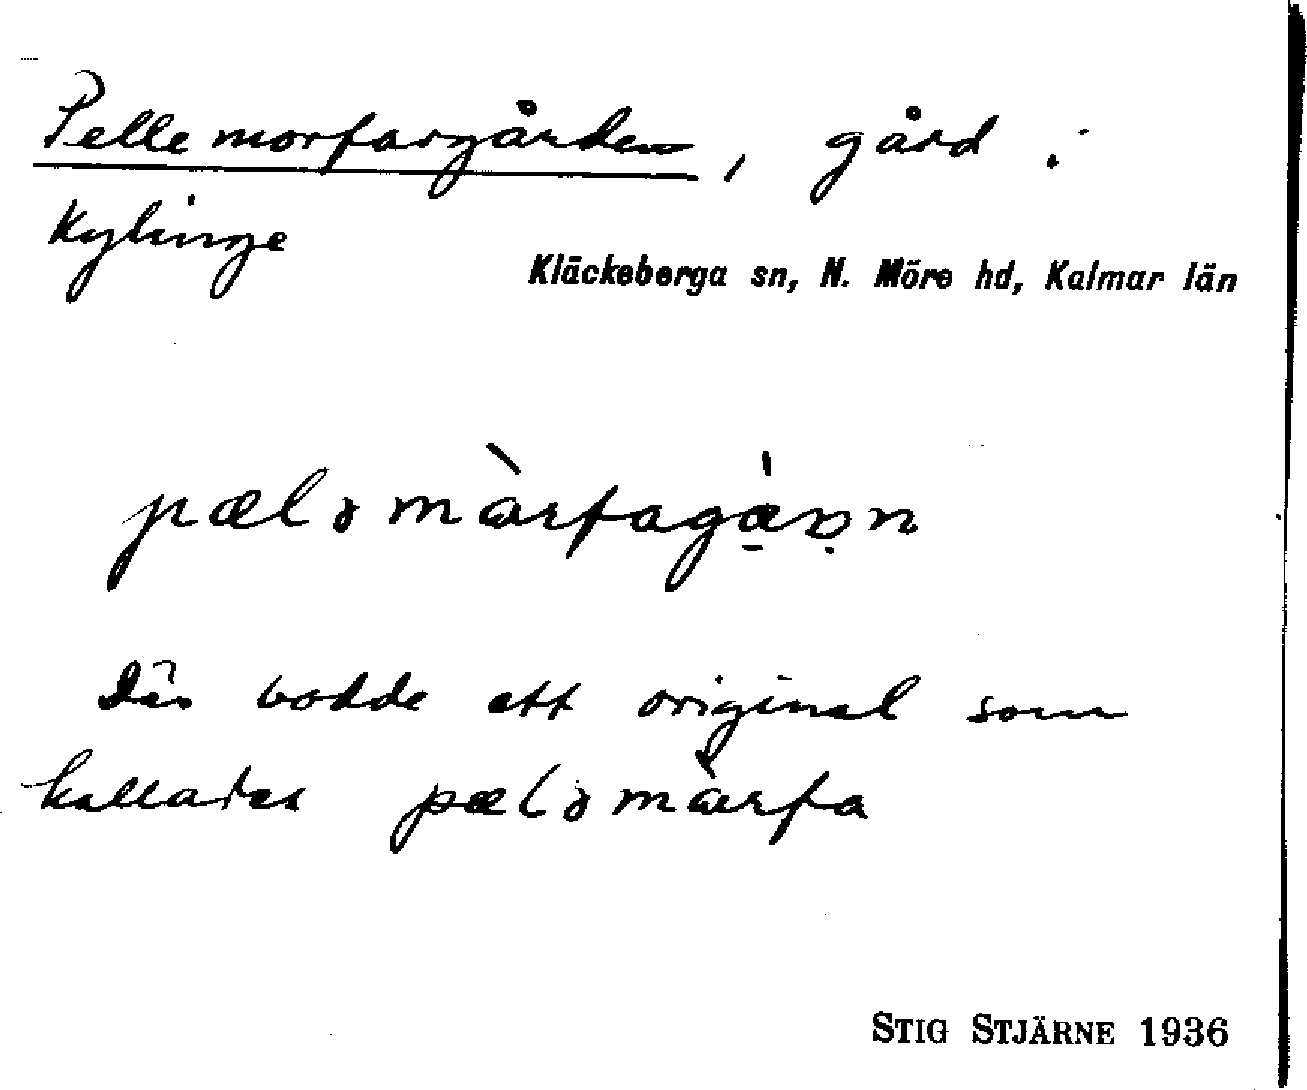 Pelle morfargården, gård i
Kylinge
Kläckeberga sn, N. Möre hd, Kalmar län
pælə màrfagàn
Där bodde ett original som
kallades pælə màrfa
STIG STJÄRNE 1936